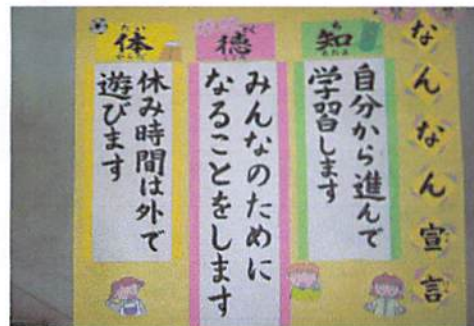 なんなん宣言
知
自分から進んで
学習します
徳
みんなのために
なることをします
体
休み時間は外で
遊びます